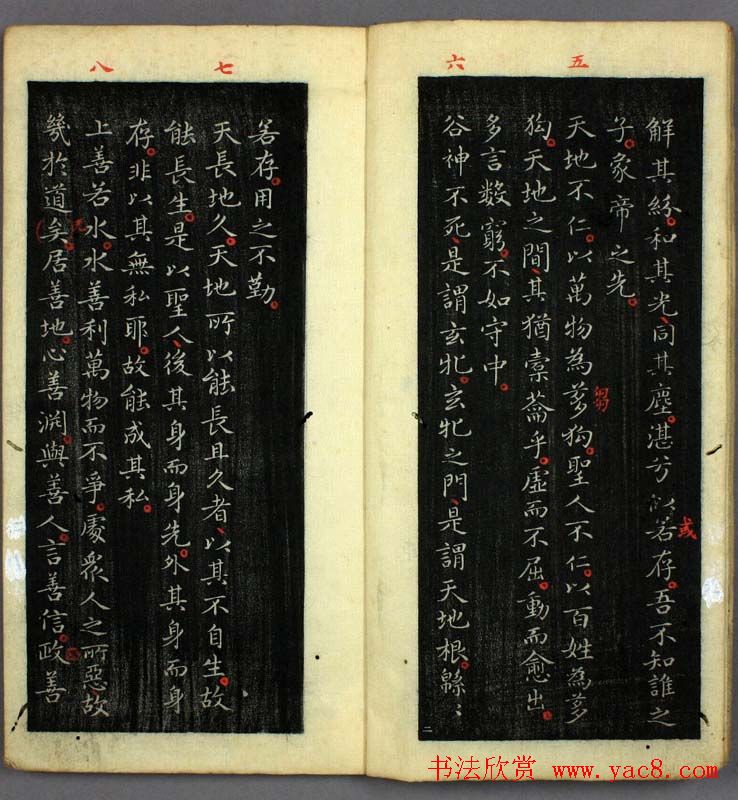 五
六
解其紛和其光同其塵湛兮似若存吾不知誰之
或
子象帝之先
天地不仁以萬物為芻狗聖人不仁以百姓為芻
芻
狗天地之間其猶橐籥乎虛而不屈動而愈出
多言數窮不如守中
谷神不死是謂玄牝玄牝之門是謂天地根緜〻
二
七
八
若存用之不勤
天長地久天地所以能長且久者以其不自生故
能長生是以聖人後其身而身先外其身而身
存非以其無私耶故能成其私
上善若水水善利萬物而不爭處眾人之所惡故
幾於道矣居善地心善淵與善人言善信政善
书法欣赏 www.yac8.com